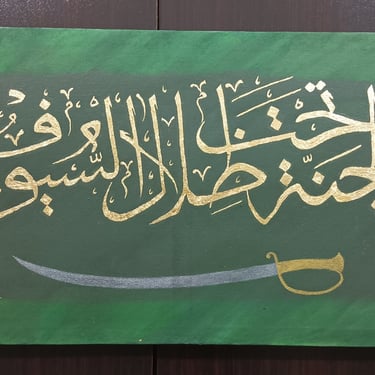 الجنّة تحت ظلال السُّيُوف